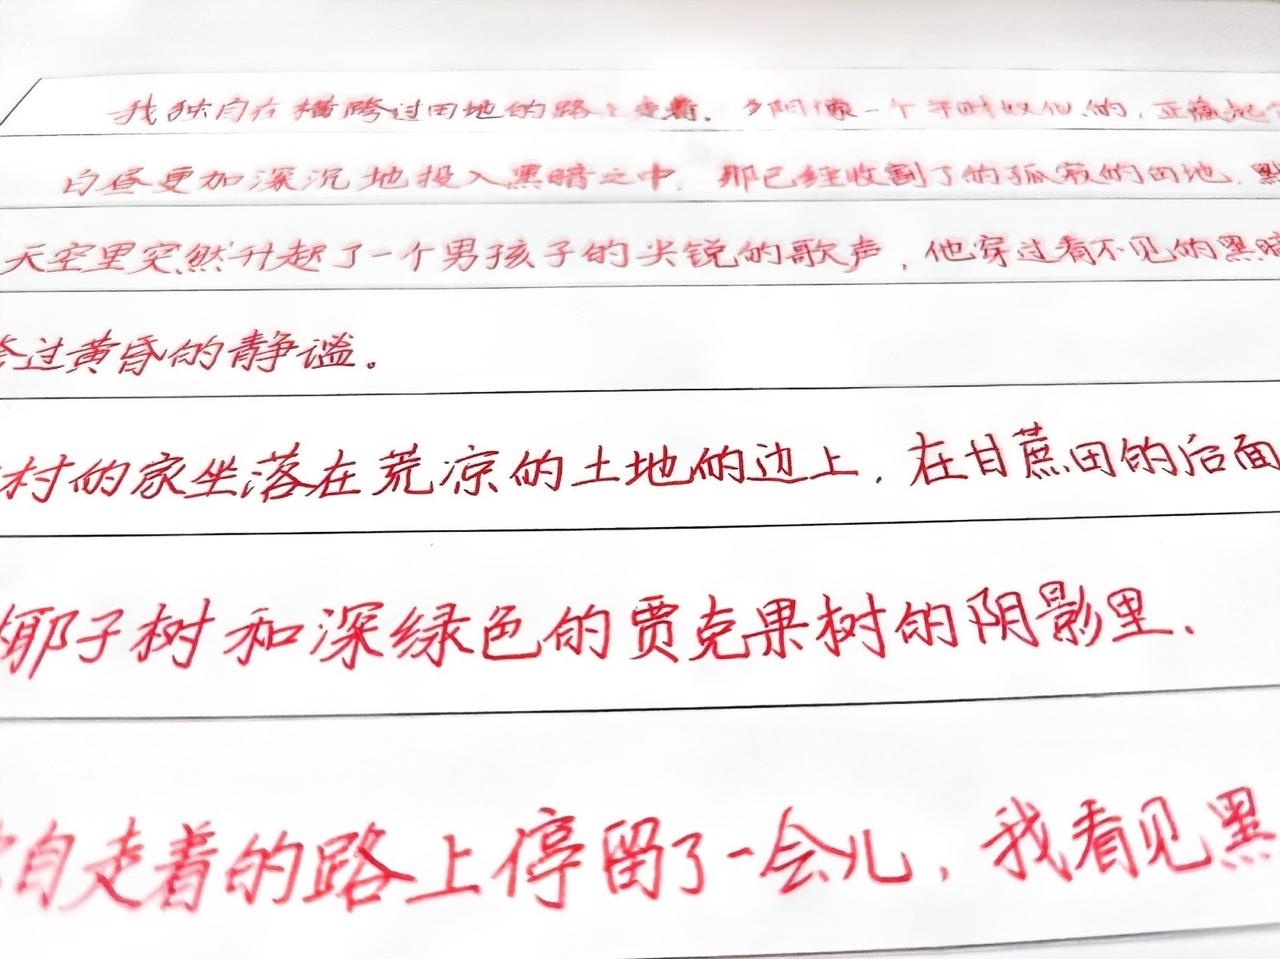 我独自在横跨过田地的路上走着，夕阳像一个守财奴似的，正藏起
白昼更加深沉地投入黑暗之中，那已经收割了的孤寂的田地，默
天空里突然升起了一个男孩子的尖锐的歌声，他穿过看不见的黑暗
过黄昏的静谧。
村的家坐落在荒凉的土地的边上，在甘蔗田的后面
椰子树和深绿色的贾克果树的阴影里．
自走着的路上停留了一会儿，我看见黑